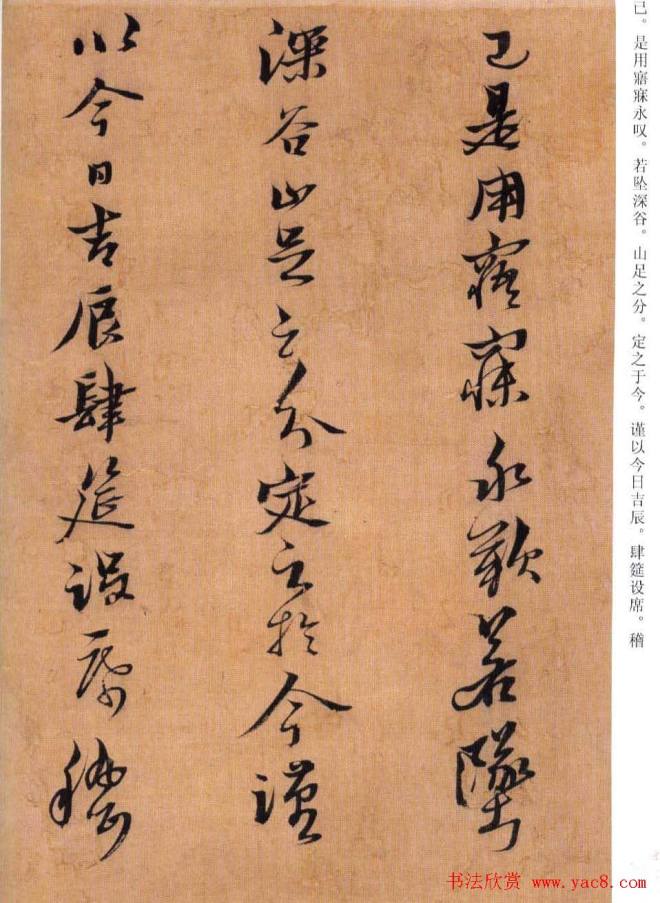 己。是用寤寐永叹。若坠深谷。山足之分。定之于今。谨以今日吉辰。肆筵设席。稽
己是用寤寐永歎若墜
深谷山足之分定之於今謹
以今日吉辰肆筵設席稽
书法欣赏 www.yac8.com